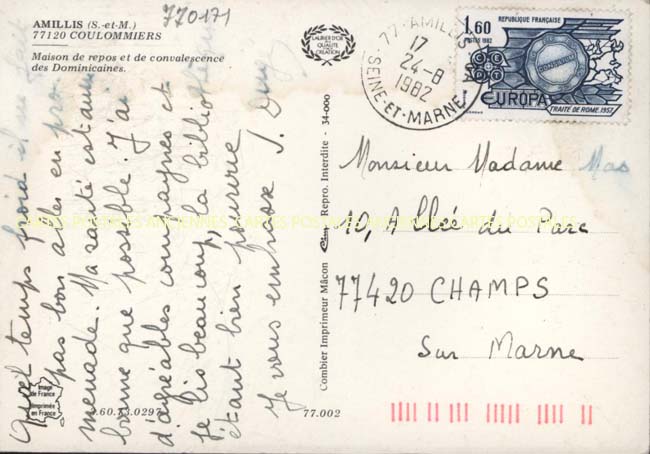 AMILLIS (S.-et-M.)
77120 COULOMMIERS
Maison de repos et de convalescence
des Dominicaines.
770171
LAURIER D'OR
DE LA
QUALITÉ
DE
CRÉATION
77 - AMILLIS
17
24-8
1982
SEINE-ET-MARNE
1,60
RÉPUBLIQUE FRANÇAISE
POSTES 1982
EUROPA
TRAITÉ DE ROME 1957
Quel temps froid il ne fait
pas bon aller en pro-
menade. Ma santé est aussi
bonne que possible. J'ai
d'agréables compagnes et
je lis beaucoup, la bibliothèque
étant bien fournie
Je vous embrasse J.
Monsieur Madame
10, Allée du Parc
77420 CHAMPS
sur Marne
Combier Imprimeur Mâcon
Repro. Interdite - 34-000
CARTES POSTALES ANCIENNES CARTES POSTALES ANCIENNES CARTES POSTALES
Image
de France
Imprimée
en France
77.002